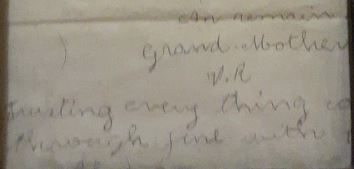 An remain
Grand-Mother
V.R
trusting every thing
through fine with